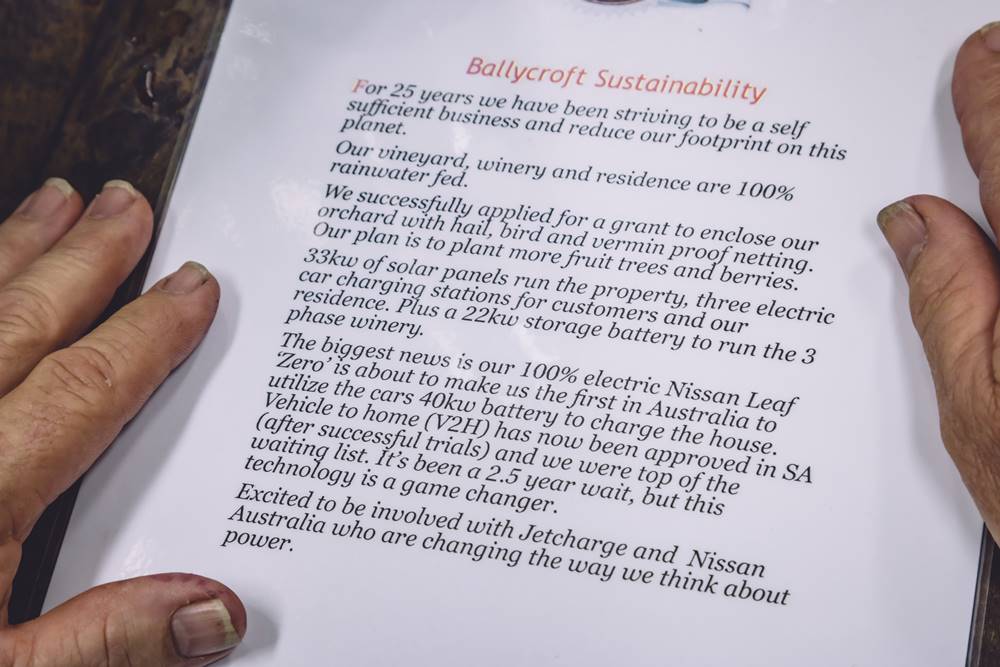 Ballycroft Sustainability
For 25 years we have been striving to be a self
sufficient business and reduce our footprint on this
planet.
Our vineyard, winery and residence are 100%
rainwater fed.
We successfully applied for a grant to enclose our
orchard with hail, bird and vermin proof netting.
Our plan is to plant more fruit trees and berries.
33kw of solar panels run the property, three electric
car charging stations for customers and our
residence. Plus a 22kw storage battery to run the 3
phase winery.
The biggest news is our 100% electric Nissan Leaf
‘Zero’ is about to make us the first in Australia to
utilize the cars 40kw battery to charge the house.
Vehicle to home (V2H) has now been approved in SA
(after successful trials) and we were top of the
waiting list. It’s been a 2.5 year wait, but this
technology is a game changer.
Excited to be involved with Jetcharge and  Nissan
Australia who are changing the way we think about
power.